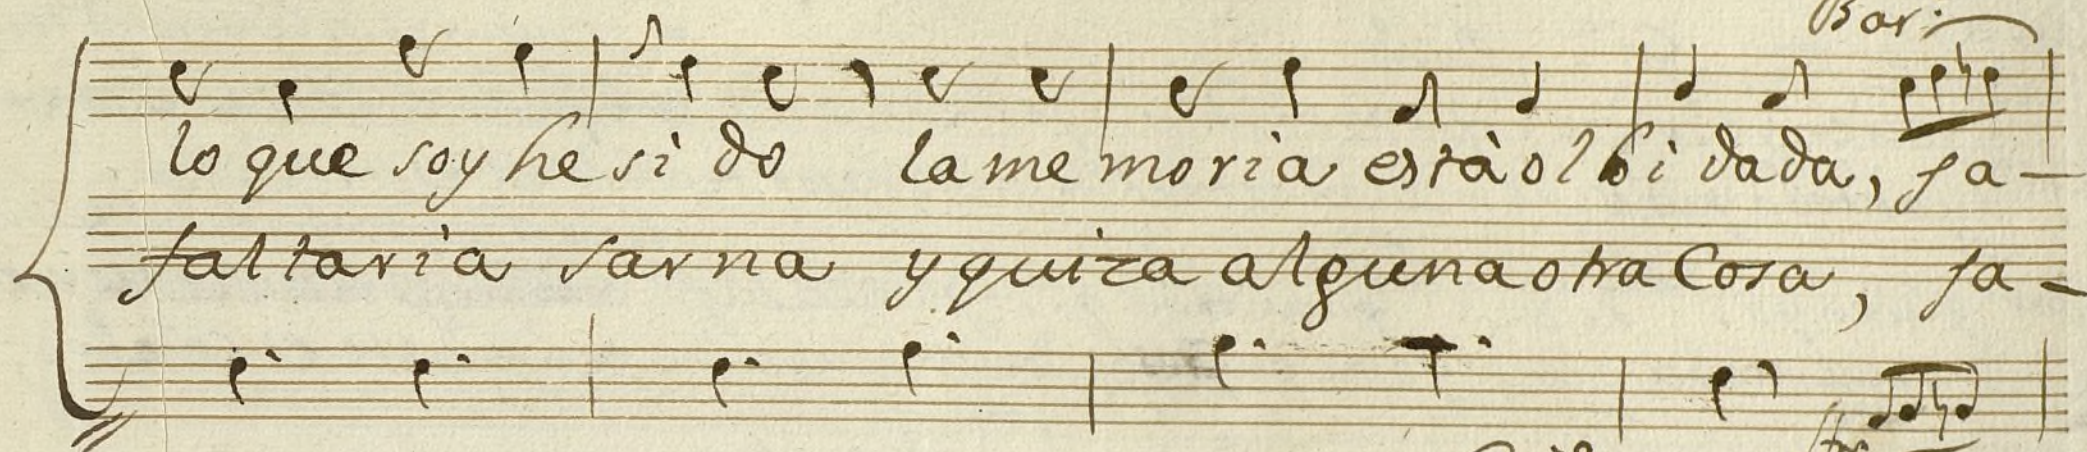 Bar:
lo que soy he sido la memoria està olbidada, sa-
faltaria sarna y quiza alguna otra Cosa, sa-